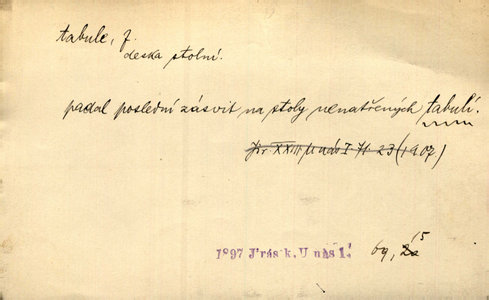 tabule, f.
deska stolní.
padal poslední zásvit na stoly nenatřených tabulí.
Jir. XXIII U nás I. 71. 23 (1907)
1897 Jirásk, U nás 1. 69, 15